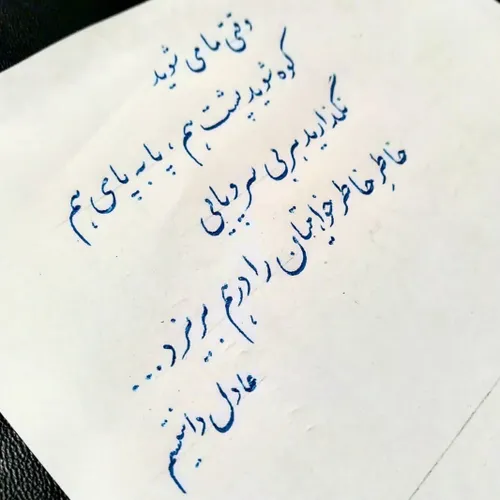 وقتی ما می شوید
کوه شوید پشت هم، پا به پای هم
نگذارید هر بی سر و پایی
خاطر خاطرخواهتان را درهم بریزد...
عادل دانتیسم